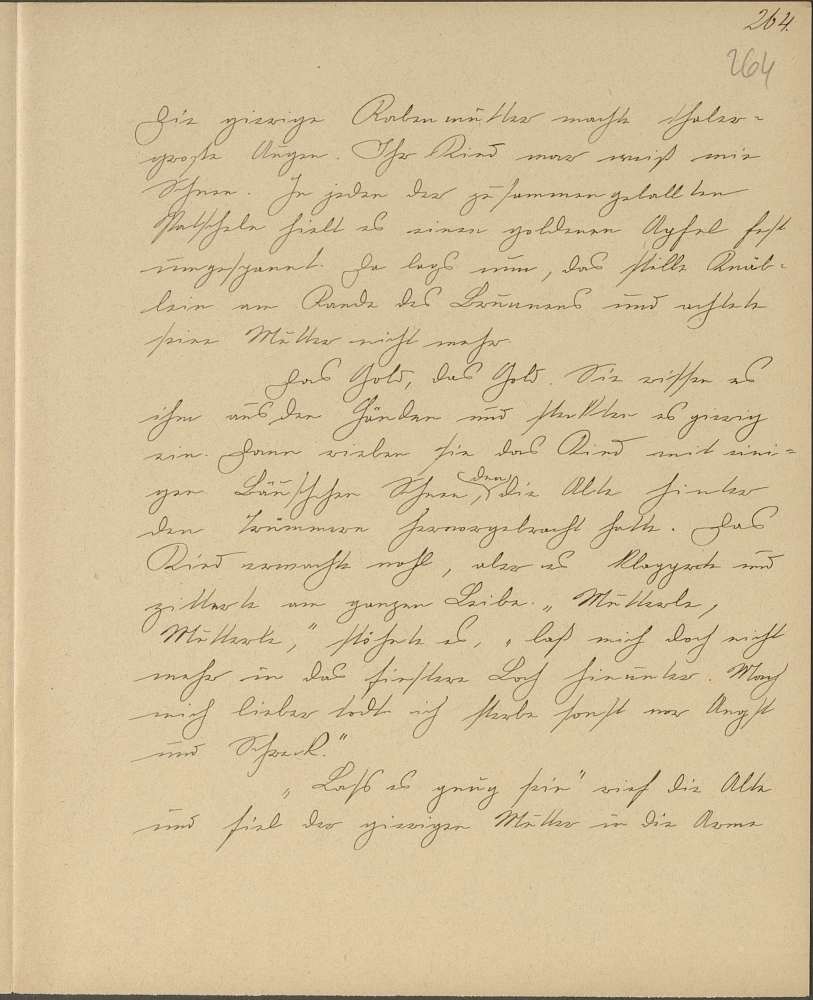 264.
264
Die gierige Rabenmutter machte thaler-
große Augen. Ihr Kind war weiß wie
Schnee. In jeden der zusammengeballten
Patscheln hielt es einen goldenen Apfel fest
umgespannt. Da lags nun, das stille Knäb-
lein am Rande des Brunnens und achtete
seine Mutter nicht mehr.
Das Gold, das Gold. Sie rissen es
ihm aus den Händen und steckten es gierig
ein. Dann rieben sie das Kind mit eini-
gen Bäuschchen Schnee, den die Alte hinter
den Trümmern hervorgebracht hatte. Das
Kind erwachte wohl, aber es klapperte und
zitterte am ganzen Leibe. „Mutterle,
Mutterle,“ stöhnte es, „laß mich doch nicht
mehr in das finstere Loch hinunter. Mach
mich lieber todt ich sterbe sonst vor Angst
und Schreck.“
„Lass es genug sein“ rief die Alte
und fiel der gierigen Mutter in die Arme